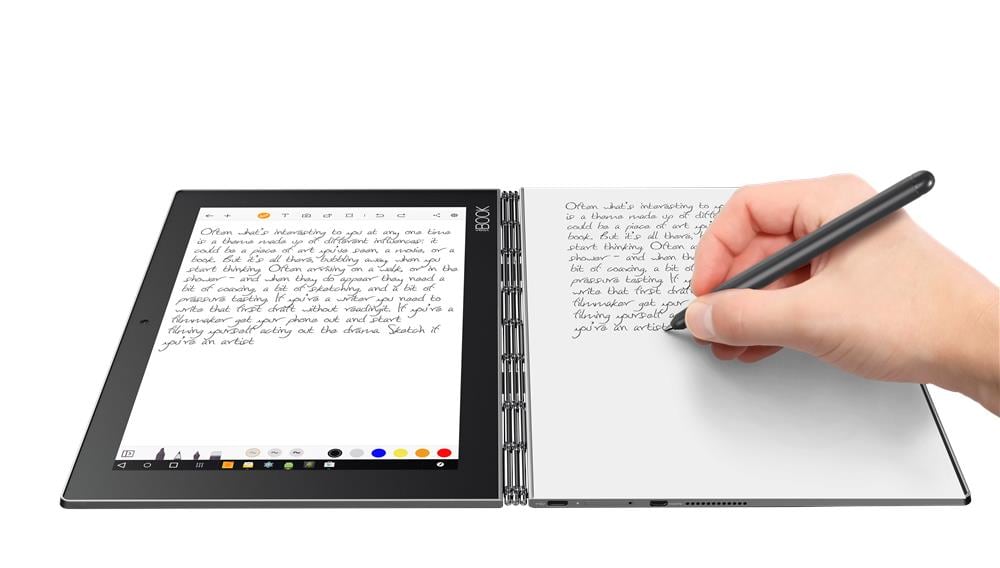 Often what's interesting to you at any one time
is a theme made up of different influences: it
could be a piece of art you've seen, a movie, or a
book. But it's all there, bubbling away, when you
start thinking. Often arising on a walk, or in the
shower – and when they do appear they need a
bit of coaxing, a bit of sketching, and a bit of
pressure testing. If you're a writer you need to
write that first draft without readingit. If you're a
filmmaker get your phone out and start
filming yourself acting out the drama. Sketch if
you're an artist
BOOK
Often what's interesting to
is a theme made up of
could be a piece of art
book. But it's all there,
start thinking. Often
shower – and when
bit of coaxing, a bit of
pressure testing. If
write that first draft
filmmaker get your
filming yourself
you're an artist